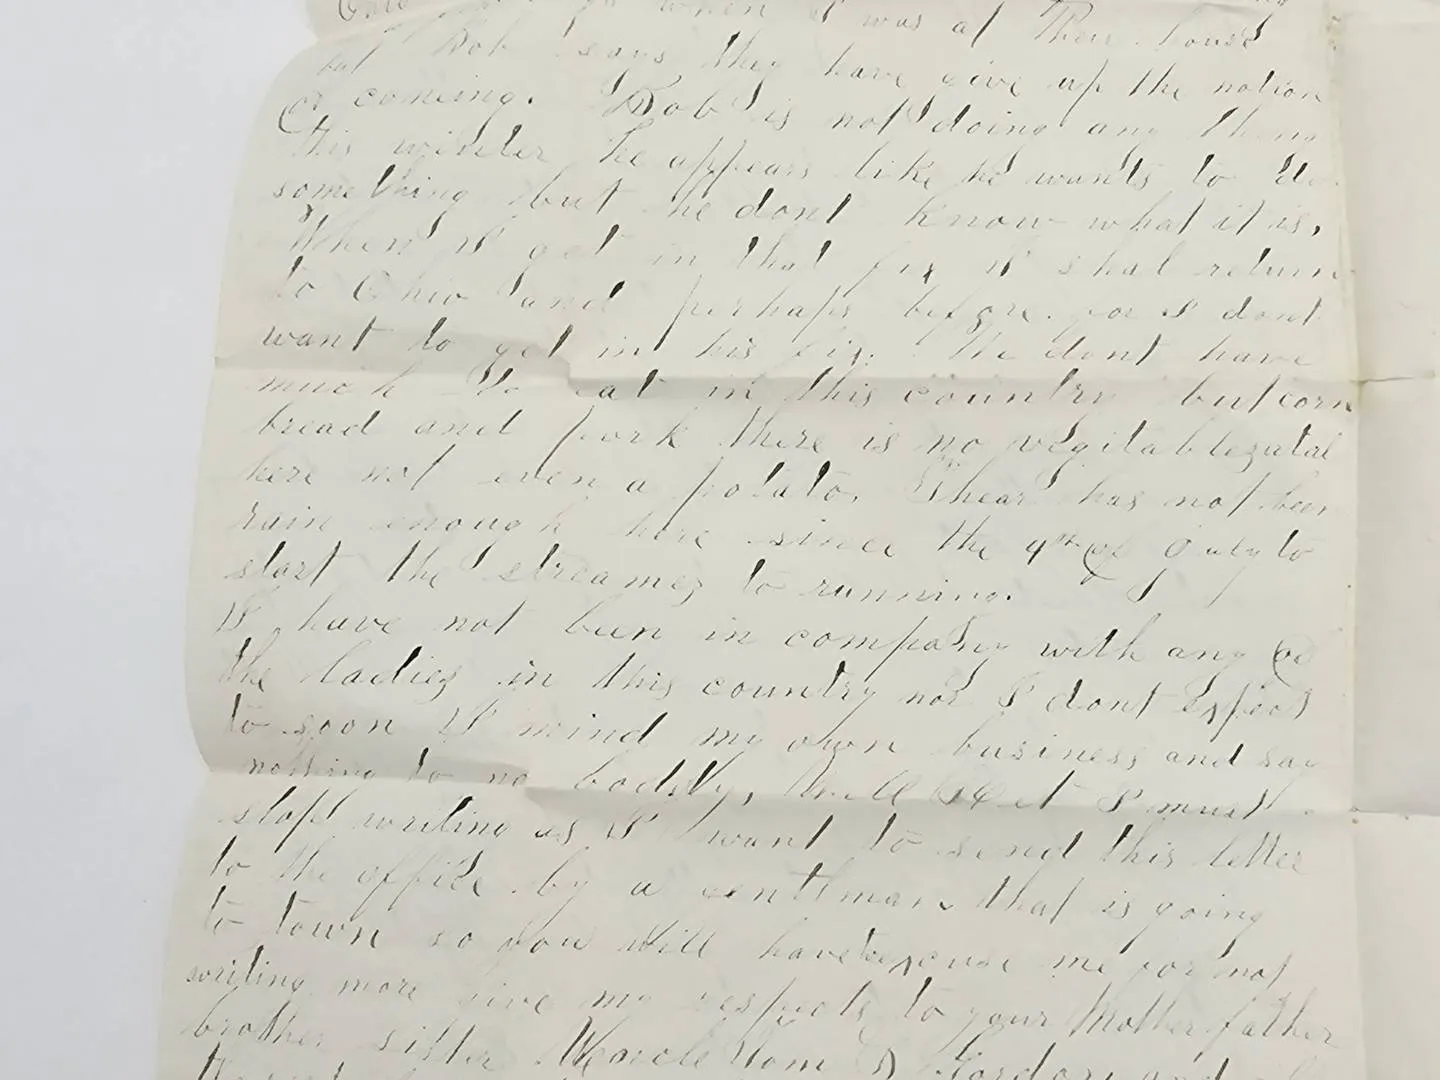 when I was at Their house
but Bob says they have give up the notion
of coming. Bob is not doing any thing
this winter he appears like he wants to do
something but he dont know what it is,
When I get in that fix I shal return
to Ohio and perhaps before for I dont
want to get in his fix. We dont have
much to eat in this country but corn
bread and pork there is no vegitables atal
here not even a potato, Thear has not been
rain enough here since the 4th of July to
start the streames to running.
I have not been in company with any of
the Ladies in this country nor I dont expect
to soon I mind my own business and say
nothing to no bodsty, Well I must
stop writing as I want to send this letter
to the office by a gentlman that is going
to town so you will have to excuse me for not
writing more give my respects to your Mother father
brother sister Tom Gordon and